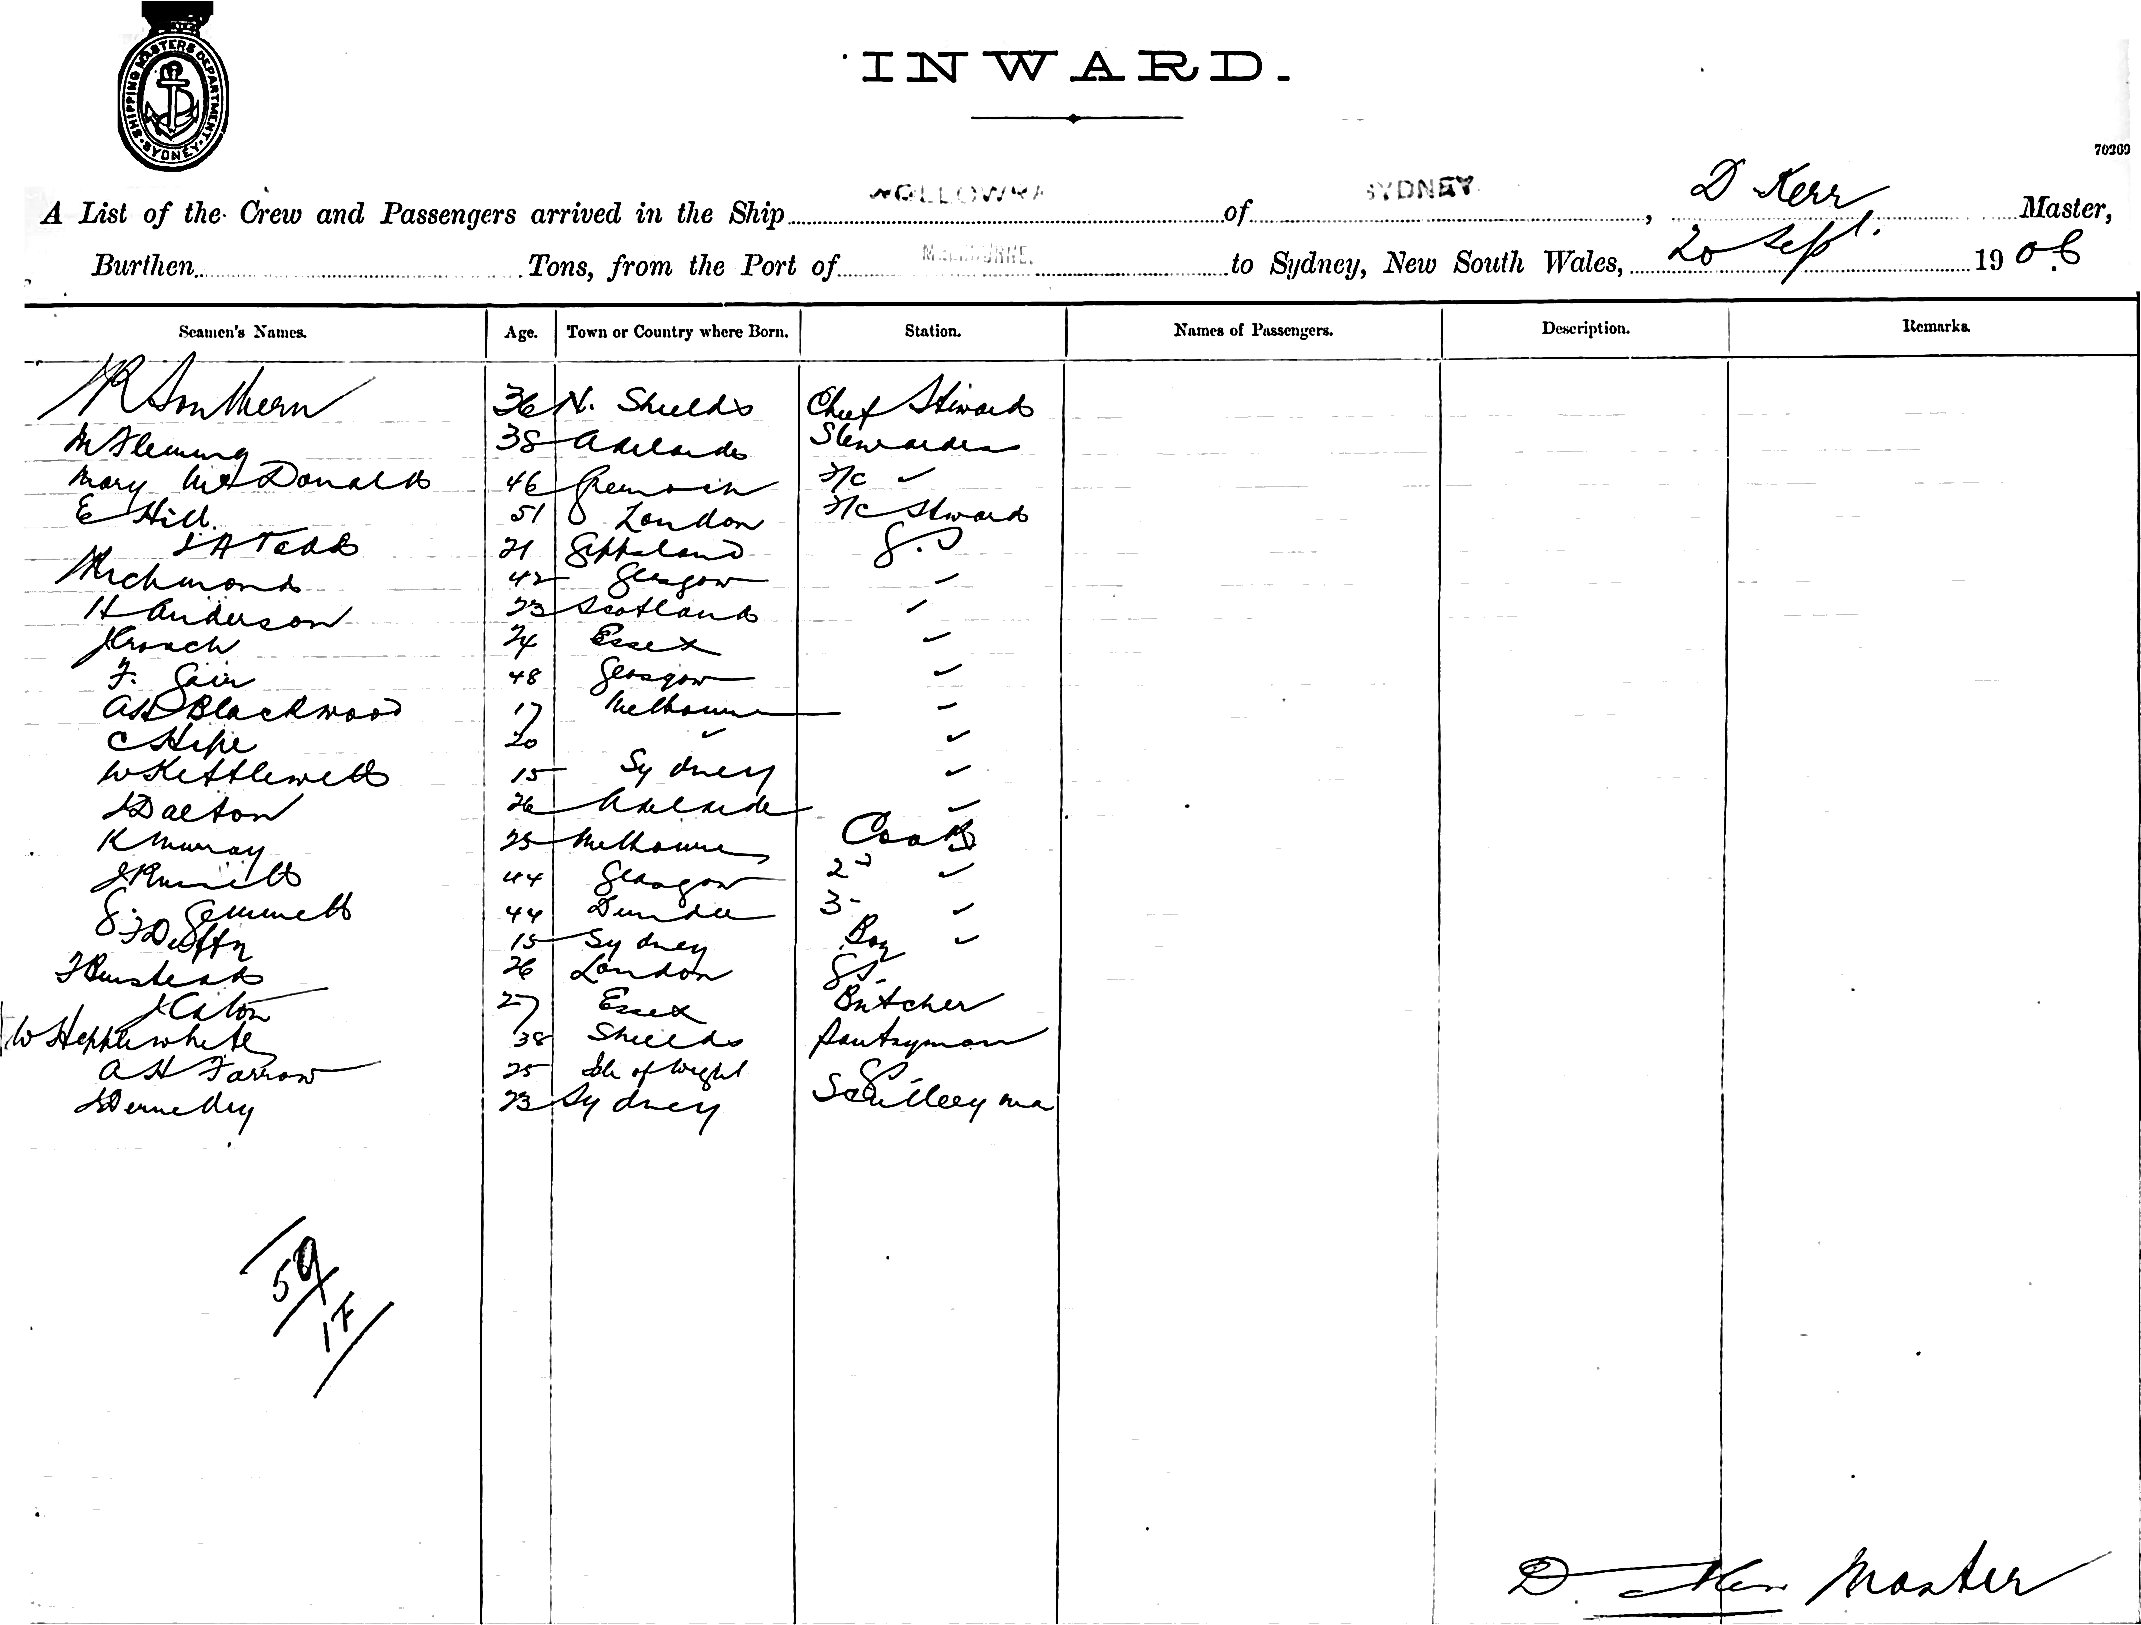 SHIPPING MASTERS DEPARTMENT SYDNEY
INWARD.
70209
A List of the Crew and Passengers arrived in the Ship WOLLOWRA of SYDNEY, D Kerr Master,
Burthen Tons, from the Port of MELBOURNE. to Sydney, New South Wales, 20 Sept. 1906
Seamen's Names. Age. Town or Country where Born. Station. Names of Passengers. Description. Remarks.
R Southern 36 N. Shields Chief Steward
M Fleming 38 Adelaide Stewardess
Mary McDonald 46 F/c ✓
E Hill 51 London F/c Steward
J A Todd 21 Gippsland G.S
Richmond 42 Glasgow ✓
H Anderson 23 Scotland ✓
24 Essex ✓
F. Gair 48 Glasgow ✓
A H Blackwood 17 Melbourne ✓
C Hipe 20 ✓ ✓
W Kettlewell 15 Sydney ✓
J Dalton 26 Adelaide ✓
K Murray 25 Melbourne Cook
44 Glasgow 2nd ✓
G. Gemmell 44 Dundee 3 ✓
15 Sydney Boy ✓
26 London G S.
J Caton 27 Essex Butcher
W Hepplewhite 38 Shields Pantryman
A H Farrow 25 Isle of Wight G.
23 Sydney Sculleryma
59
1F
D Kerr Master